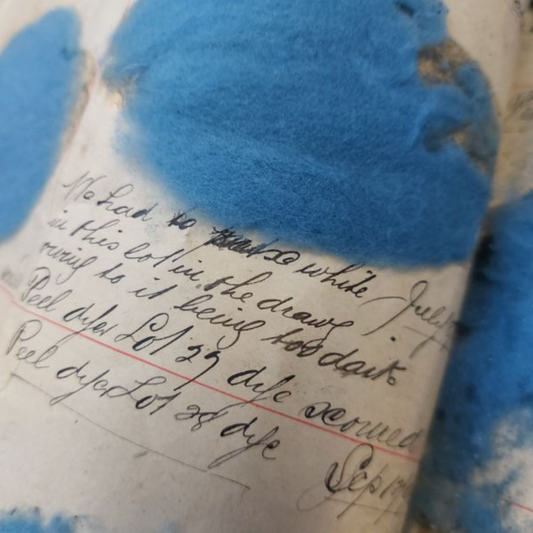 We had to white July
in this lot in the draws
owing to it being too dark
Peel dyer Lot 27 dye scoured
Peel dyer Lot 28 dye Sep